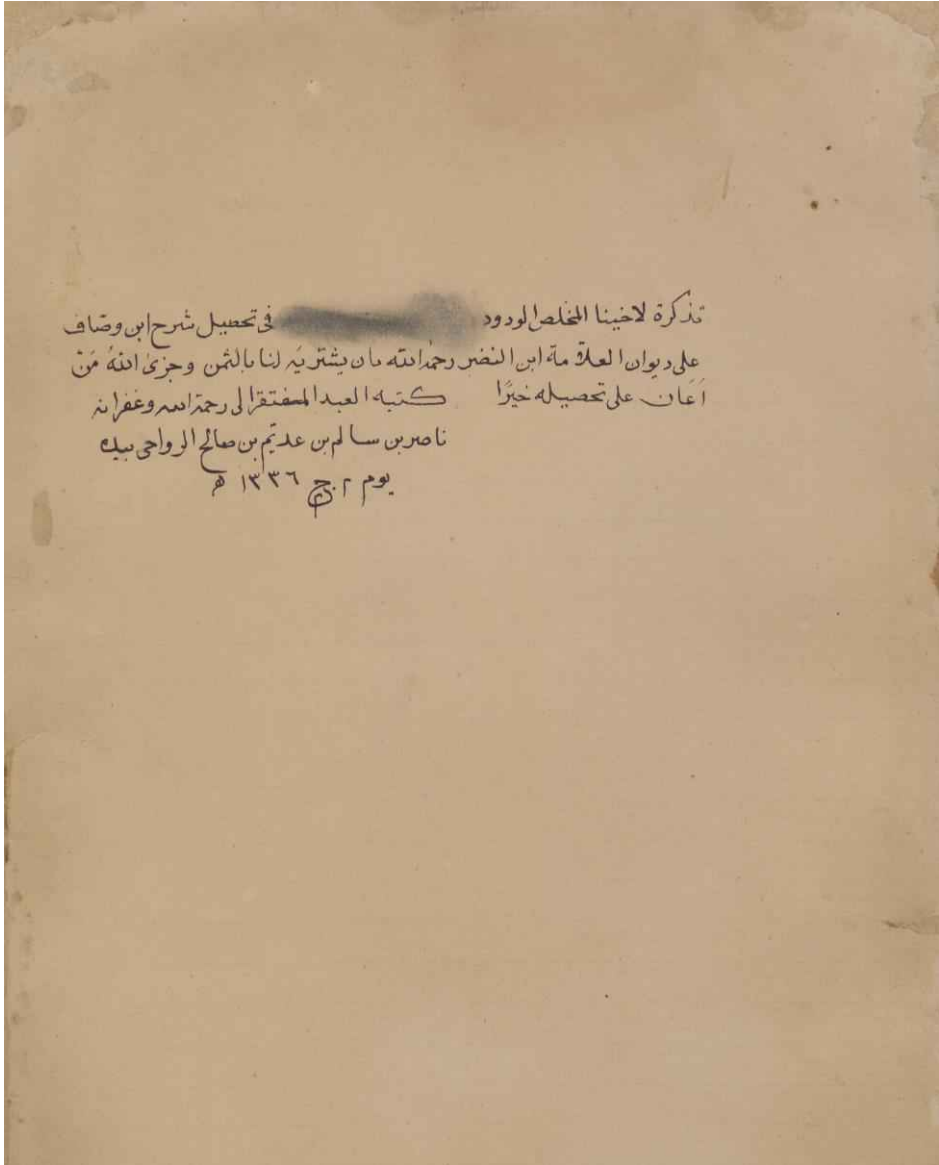 تذكرة لاخينا المخلص الودود في تحصيل شرح ابن وصّاف
على ديوان العلّامة ابن النضر رحمه الله بان يشتريَه لنا بالثمن وجزى اللهُ مَنْ
اَعَان على تحصيله خيرًا كتبه العبد المفتقر الى رحمة الله وغفرانه
ناصر بن سالم بن عديّم بن صالح الرواحي بيده
يوم ٢ ج ١٣٣٦ ه